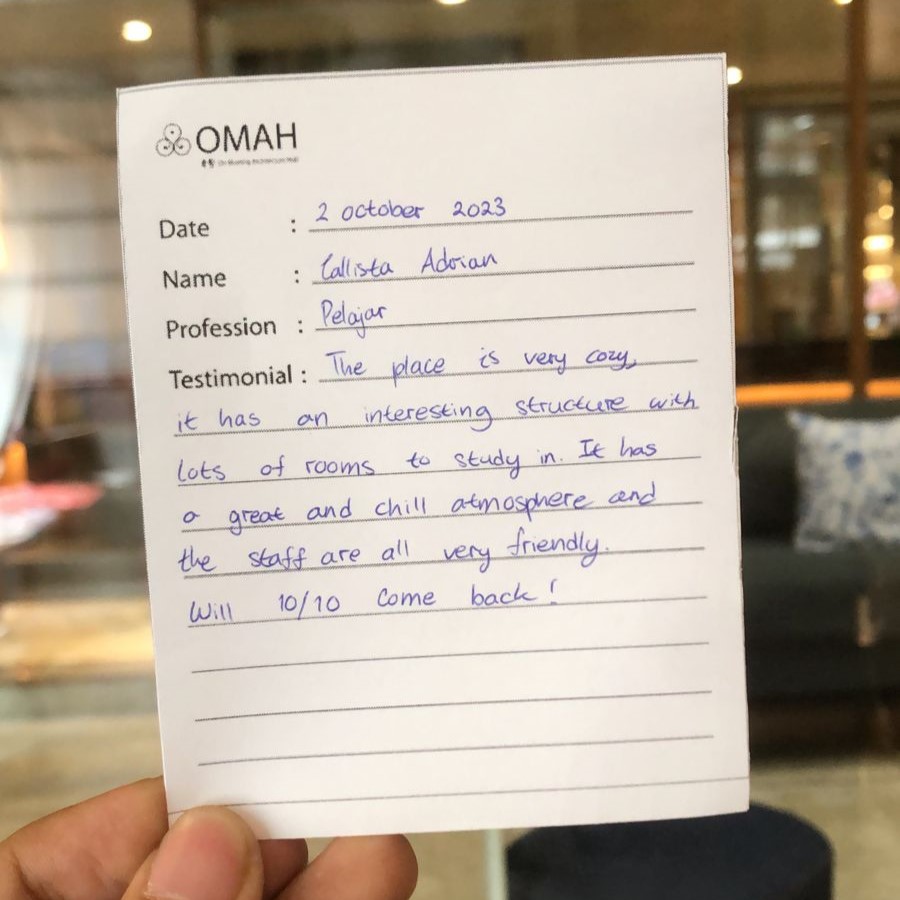 OMAH
Date : 2 October 2023
Name : Callista Adrian
Profession : Pelajar
Testimonial : The place is very cozy,
it has an interesting structure with
lots of rooms to study in. It has
a great and chill atmosphere and
the staff are all very friendly.
Will 10/10 come back!